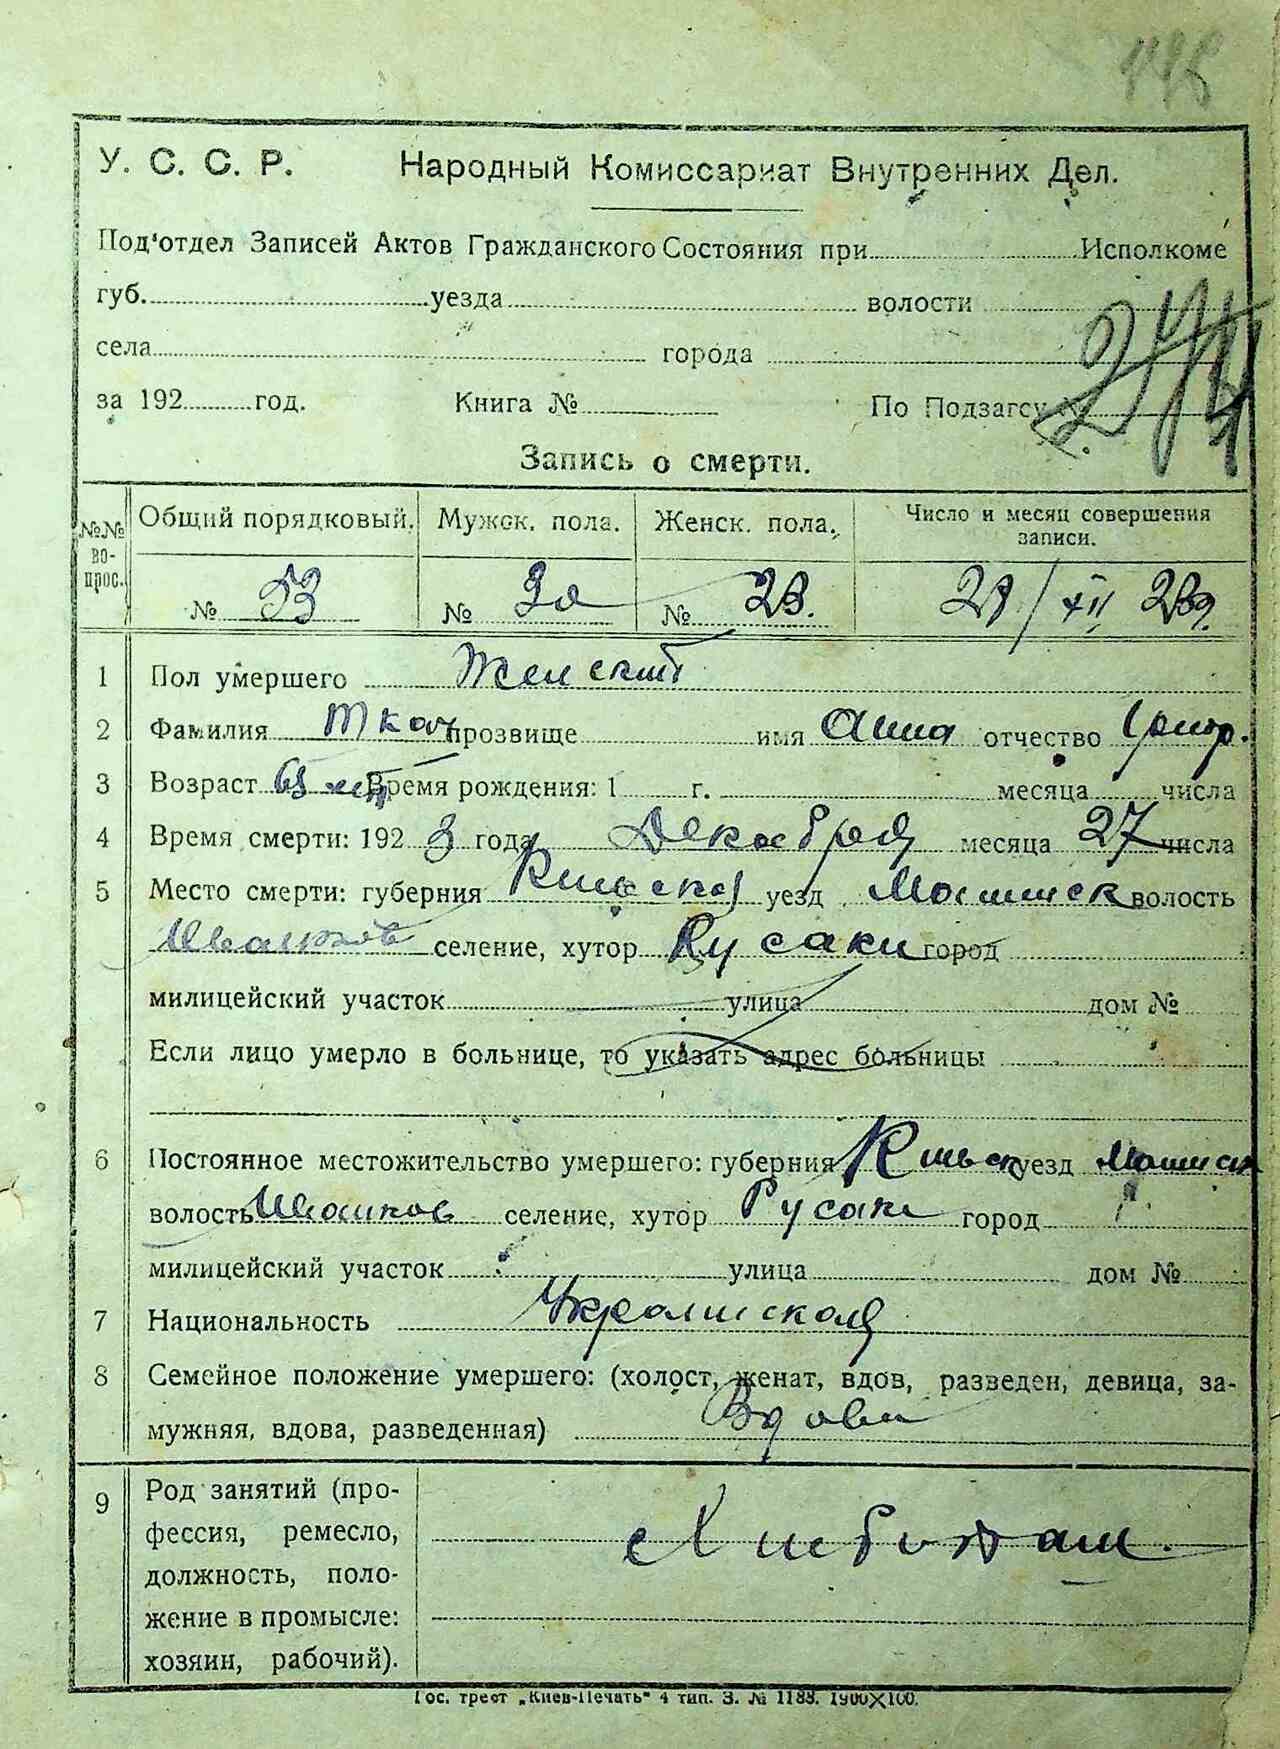 У. С. С. Р. Народный Комиссариат Внутренних Дел.
Под'отдел Записей Актов Гражданского Состояния при Исполкоме
губ. уезда волости
села города
за 192 год. Книга № По Подзагсу №
Запись о смерти.
№№ вопрос. Общий порядковый. Мужск. пола. Женск. пола. Число и месяц совершения записи.
№ 53 № 30 № 23. XII
1 Пол умершего Женский
2 Фамилия Ткач прозвище имя Анна отчество Григор.
3 Возраст 65 лет Время рождения: 1 г. месяца числа
4 Время смерти: 192 3 года Декабря месяца 27 числа
5 Место смерти: губерния Киевская уезд волость
Иванков селение, хутор Русаки город
милицейский участок улица дом №
Если лицо умерло в больнице, то указать адрес больницы
6 Постоянное местожительство умершего: губерния Киевск уезд
волость Иванков селение, хутор Русаки город
милицейский участок улица дом №
7 Национальность Украинская
8 Семейное положение умершего: (холост, женат, вдов, разведен, девица, за-
мужняя, вдова, разведенная) Вдова
9 Род занятий (про-
фессия, ремесло,
должность, поло-
жение в промысле:
хозяин, рабочий).
Гос. трест „Киев-Печать" 4 тип. З. № 1188. 1900×100.